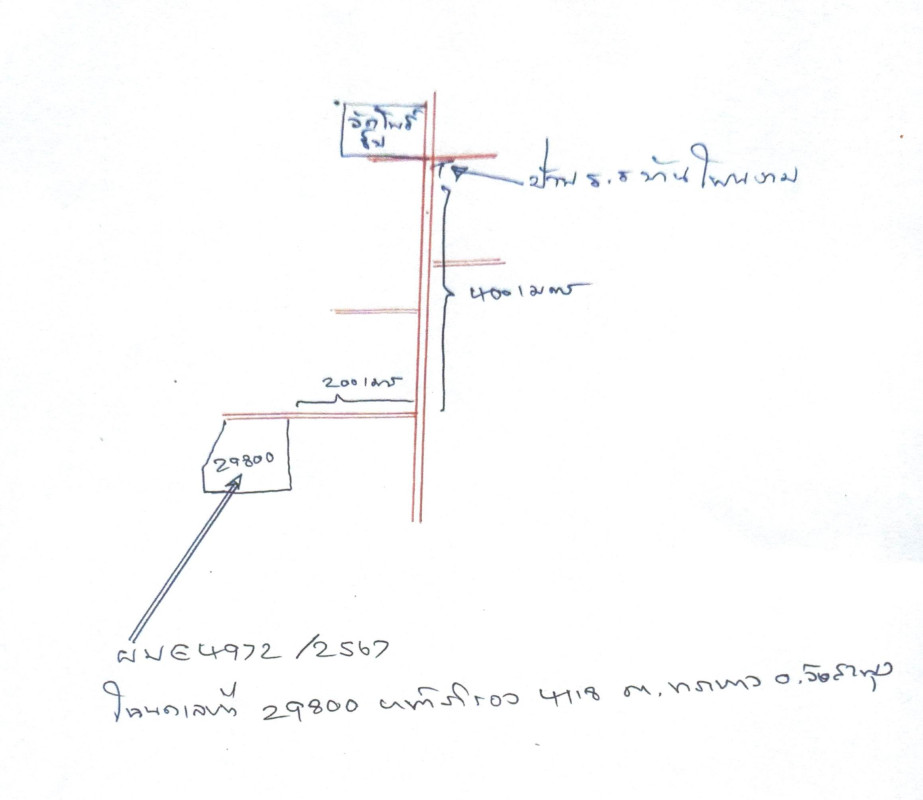 วัดโพธิ์
ป้าย ร.ร บ้านโพนงาม
400 เมตร
200 เมตร
29800
ผบE4972/2567
โฉนดเลขที่ 29800 หน้าสำรวจ 4118 ต. ทรายขาว อ.วังสะพุง